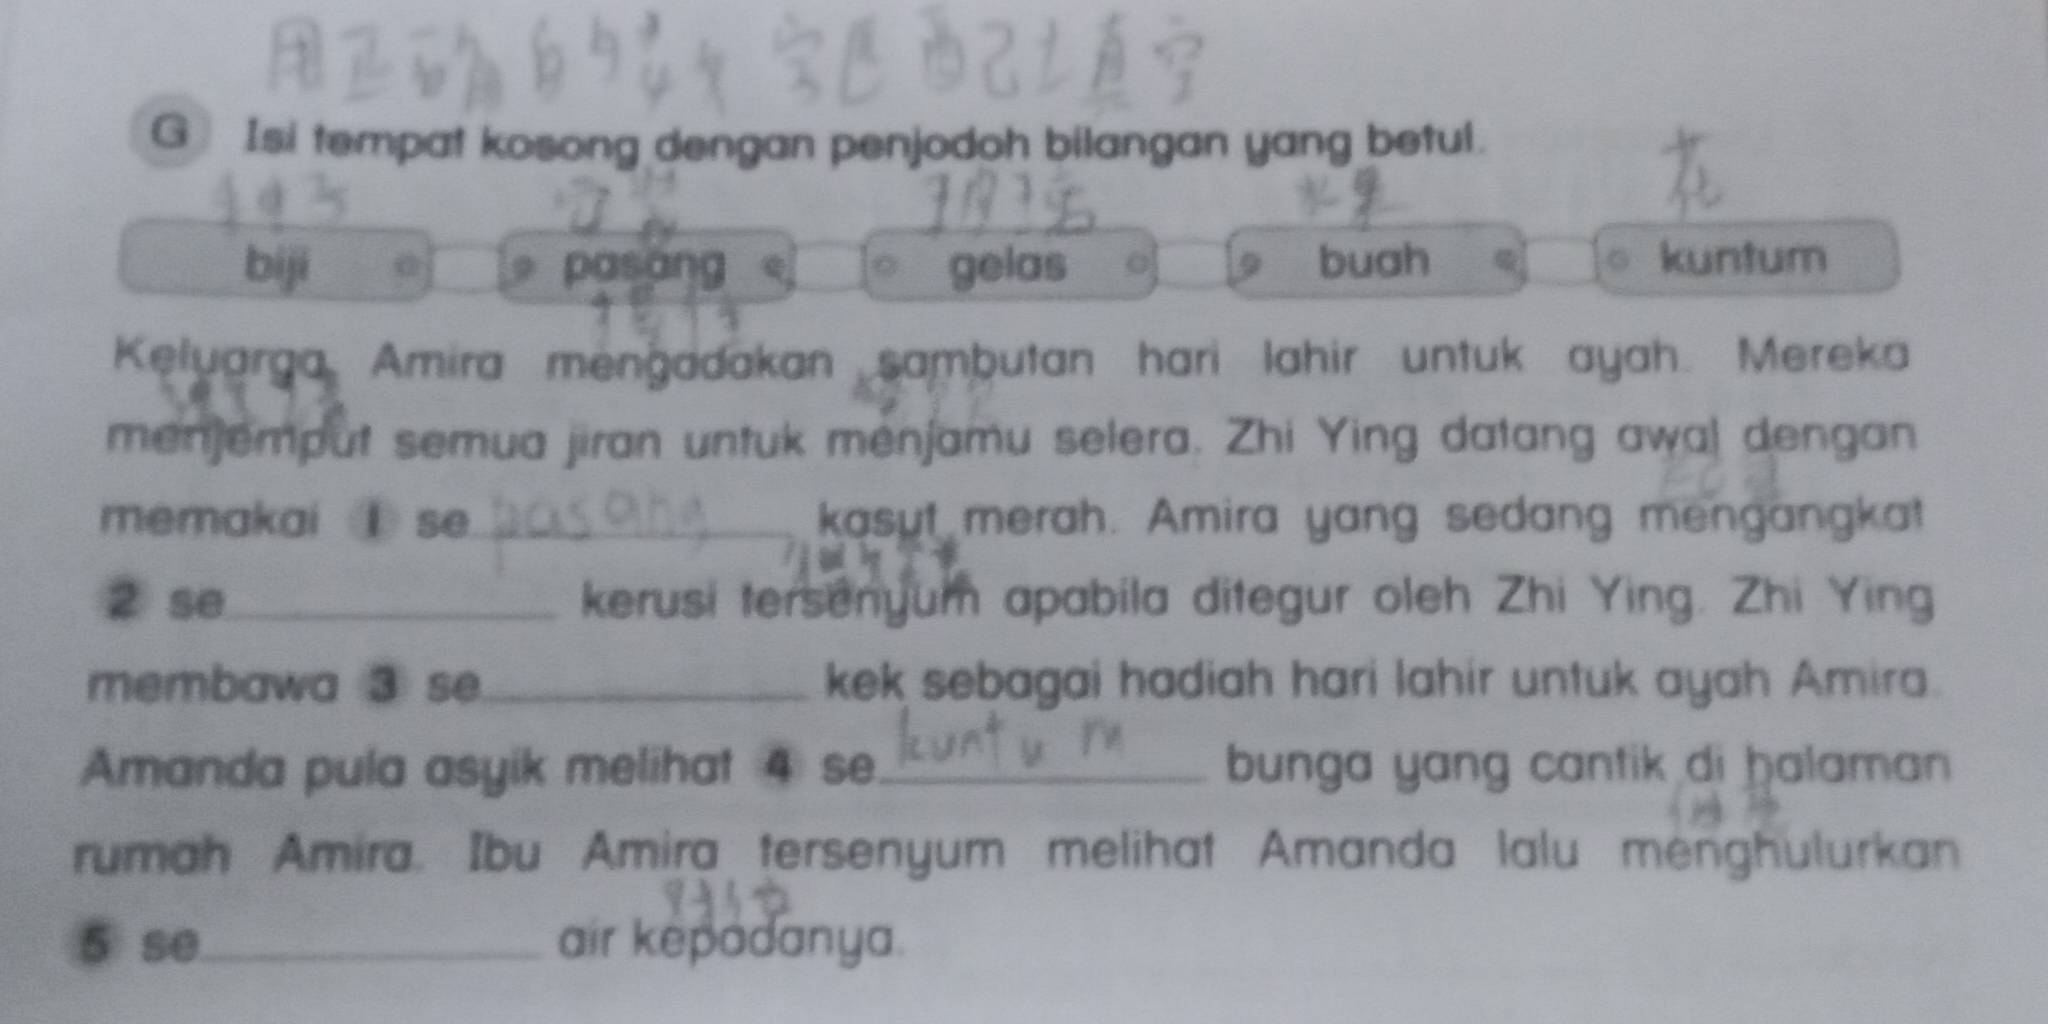 G Isi tempat kosong dengan penjodoh bilangan yang betul.
花
biji pasang gelas buah kuntum
Keluarga Amira mengadakan sambutan hari lahir untuk ayah. Mereka
menjemput semua jiran untuk menjamu selera. Zhi Ying datang awal dengan
memakai 1 se pasang kasut merah. Amira yang sedang mengangkat
2 se____ kerusi tersenyum apabila ditegur oleh Zhi Ying. Zhi Ying
membawa 3 se____ kek sebagai hadiah hari lahir untuk ayah Amira.
Amanda pula asyik melihat 4 se kuntum bunga yang cantik di halaman
rumah Amira. Ibu Amira tersenyum melihat Amanda lalu menghulurkan
5 se____ air kepadanya.